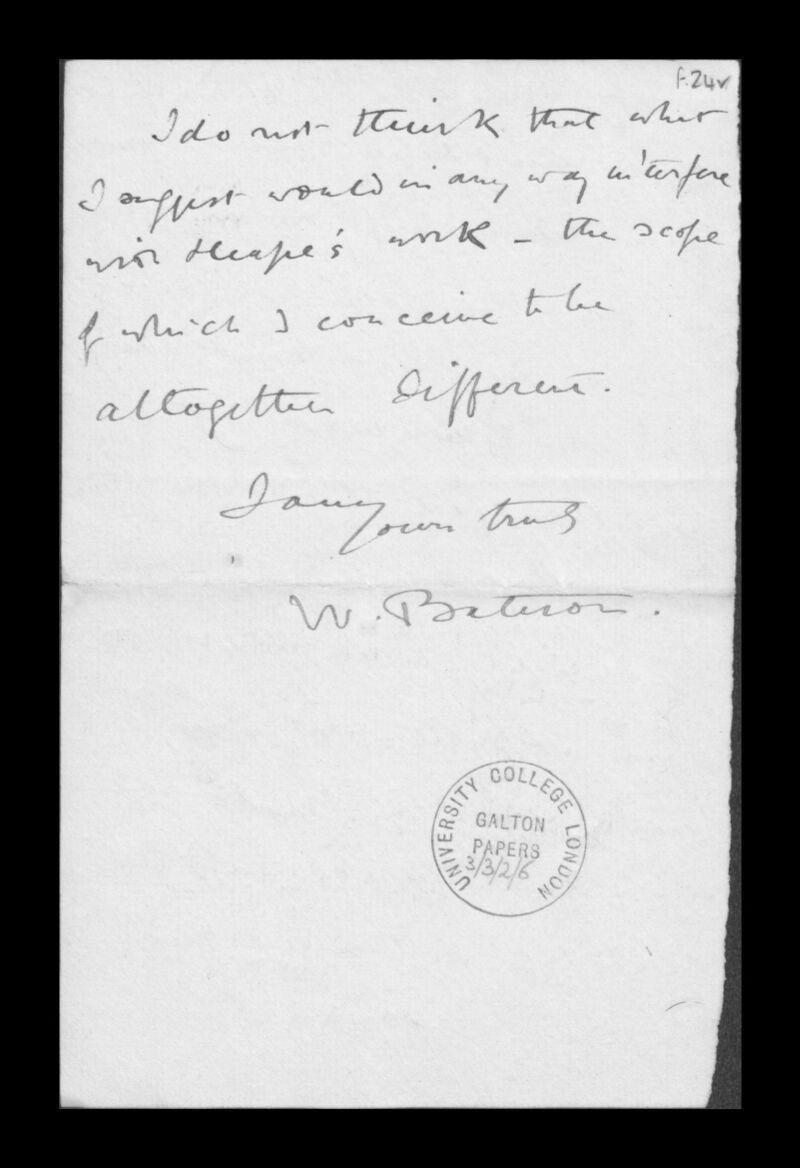 f.24v
I do not think that what
I suggest would in any way interfere
with Heape's work - the scope
of which I conceive to be
altogether different.
I am
yours truly
W. Bateson.
UNIVERSITY COLLEGE LONDON
GALTON
PAPERS
3/3/2/6